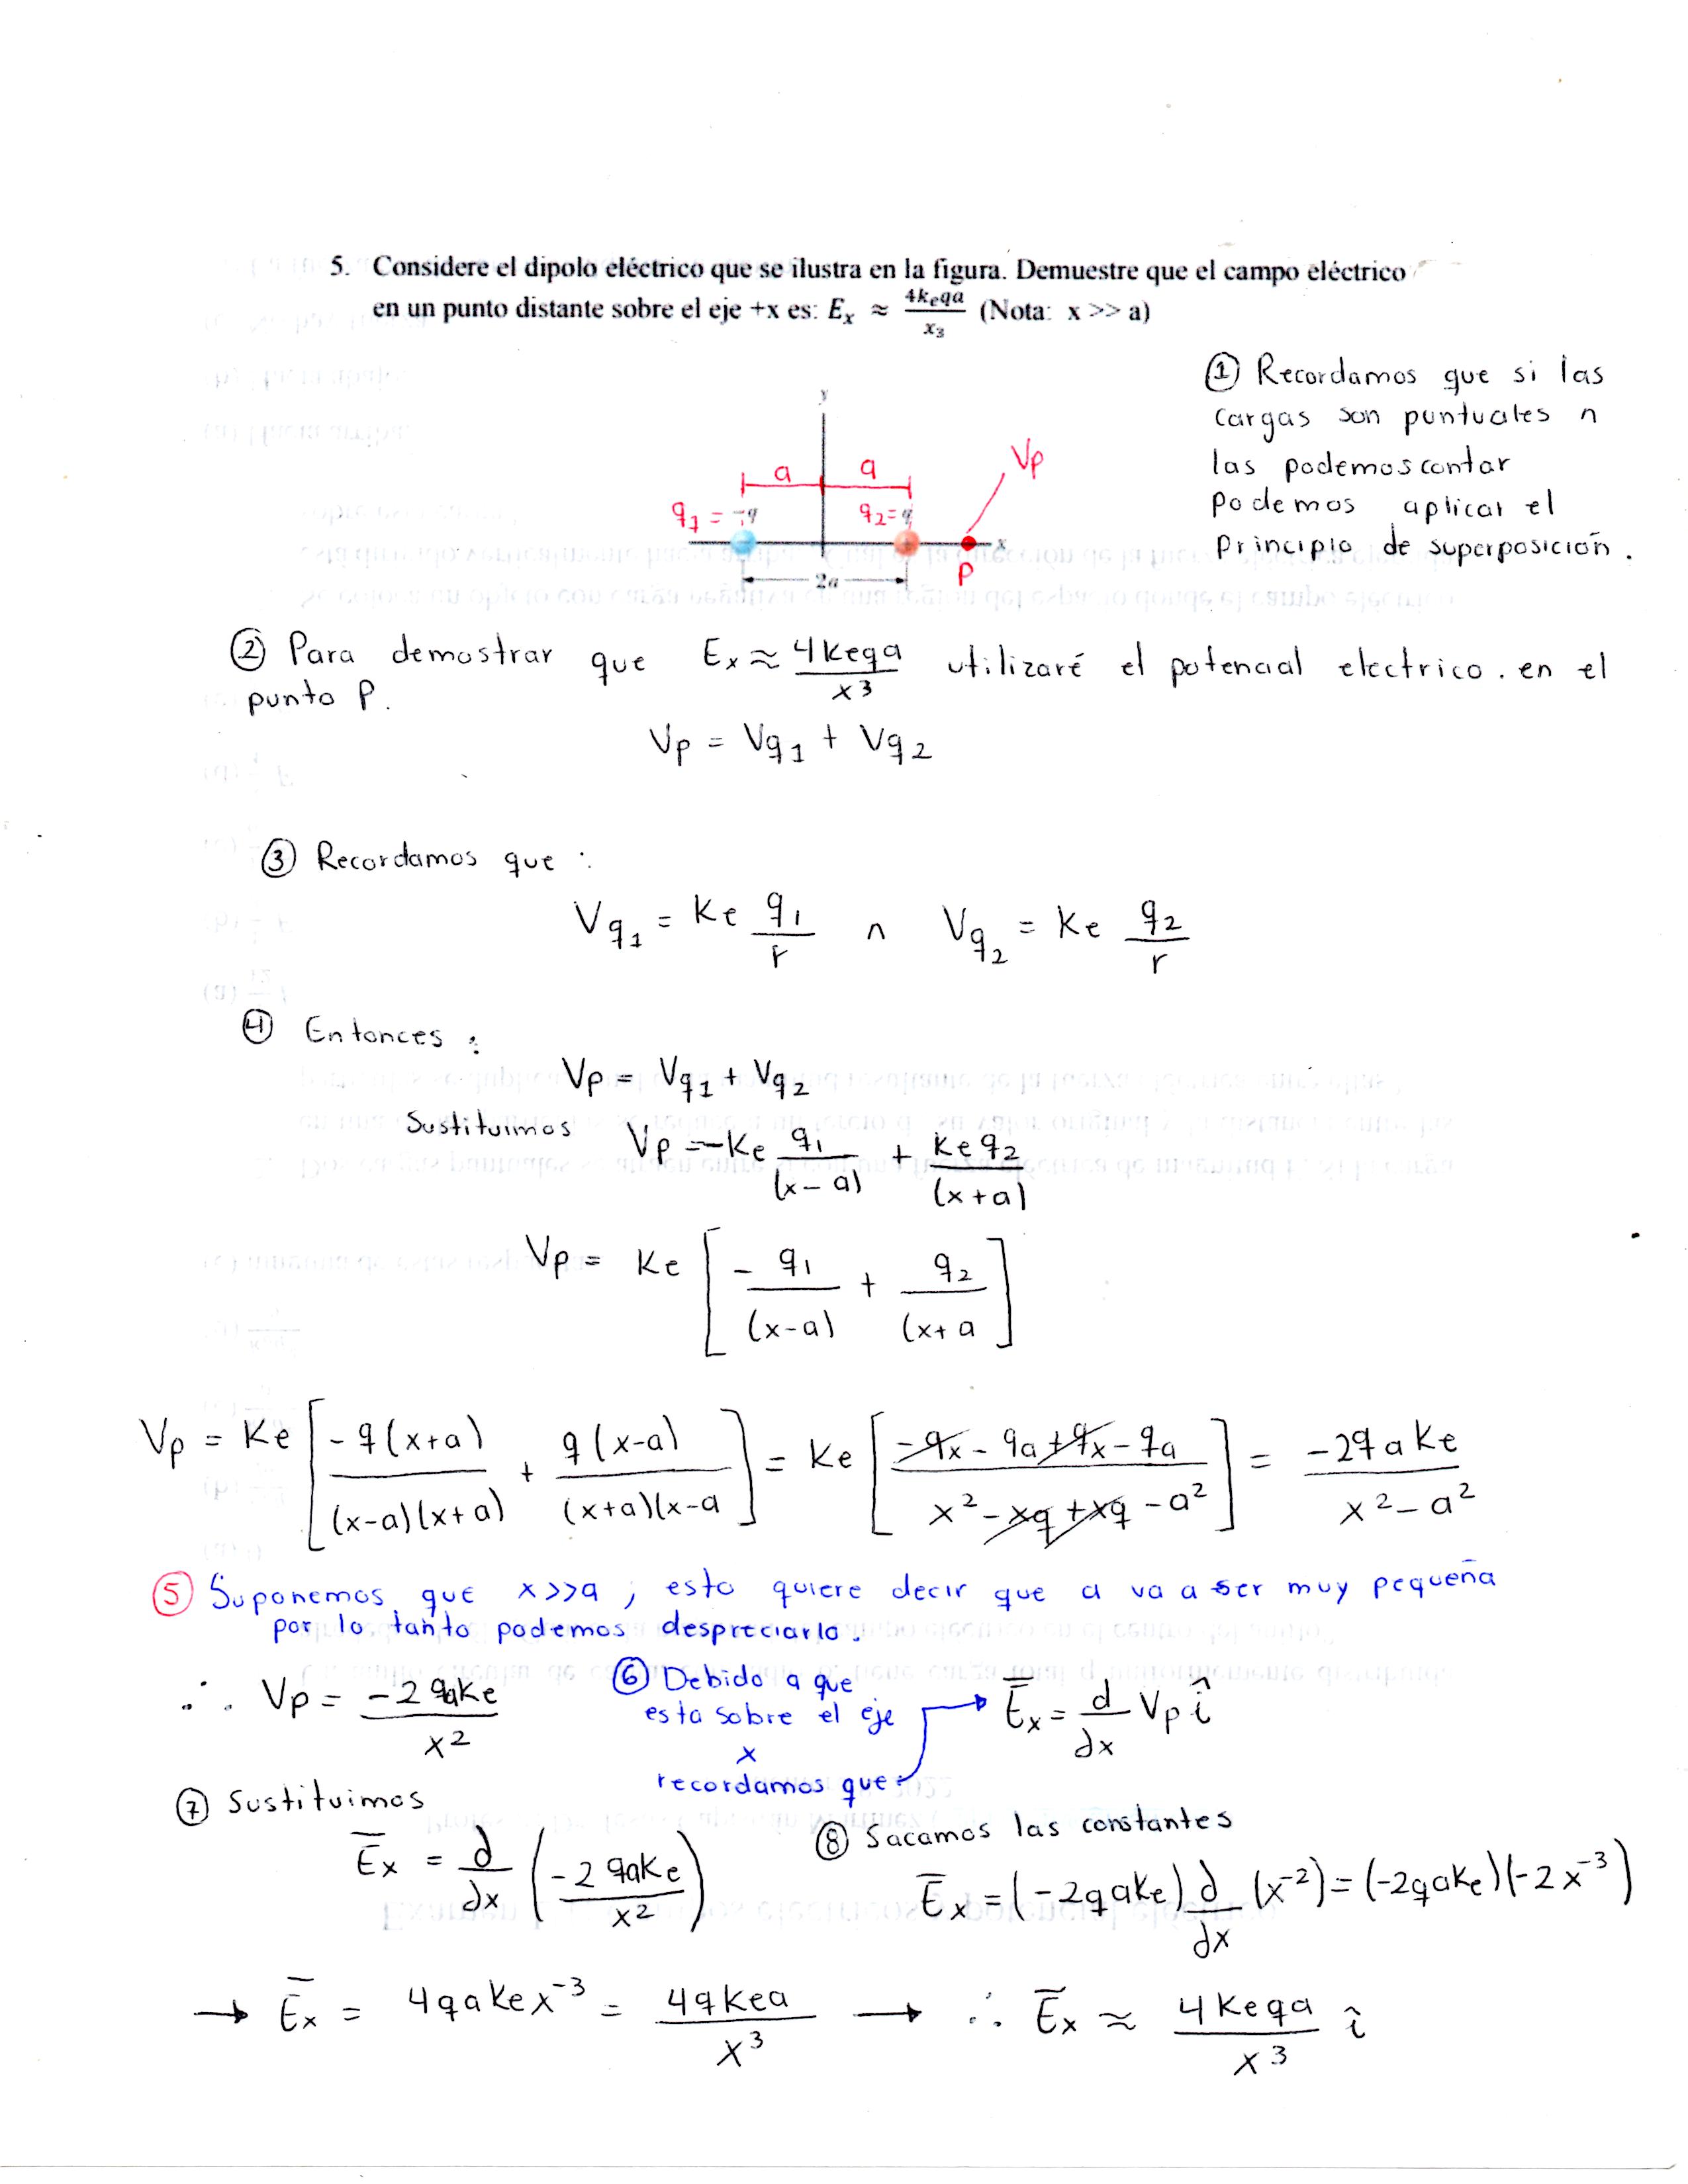 5. Considere el dipolo eléctrico que se ilustra en la figura. Demuestre que el campo eléctrico
en un punto distante sobre el eje +x es: E_x ≈ 4k_e qa / x_3 (Nota: x >> a)
① Recordamos que si las
cargas son puntuales n
las podemos contar
podemos aplicar el
principio de superposición.
y
a a Vp
q1 = -q q2=q
x
P
2a
② Para demostrar que Ex ≈ 4keqa / x³ utilizaré el potencial electrico. en el
punto P.
Vp = Vq1 + Vq2
③ Recordamos que :
Vq1 = Ke q1 / r ∩ Vq2 = Ke q2 / r
④ Entonces :
Vp = Vq1 + Vq2
Sustituimos Vp = -Ke q1 / (x-a) + Ke q2 / (x+a)
Vp = Ke [ - q1 / (x-a) + q2 / (x+a ]
Vp = Ke [ -q(x+a) / (x-a)(x+a) + q(x-a) / (x+a)(x-a ] = Ke [ -qx - qa + qx - qa / x² - xq + xq - a² ] = -2qake / x² - a²
⑤ Suponemos que x>>a ; esto quiere decir que a va a ser muy pequeña
por lo tanto podemos despreciarlo.
∴ Vp = -2qake / x²
⑥ Debido a que
esta sobre el eje
x
recordamos que: Ēx = d/dx Vp î
⑦ Sustituimos
Ēx = d/dx ( -2qake / x² )
⑧ Sacamos las constantes
Ēx = (-2qake) d/dx (x⁻²) = (-2qake)(-2x⁻³)
→ Ēx = 4qakex⁻³ = 4qkea / x³ → ∴ Ēx ≈ 4keqa / x³ î